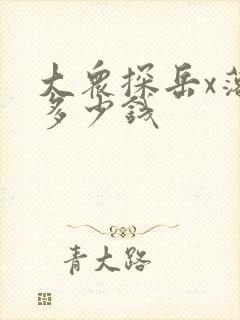 大众探岳x落
多少钱
青大路